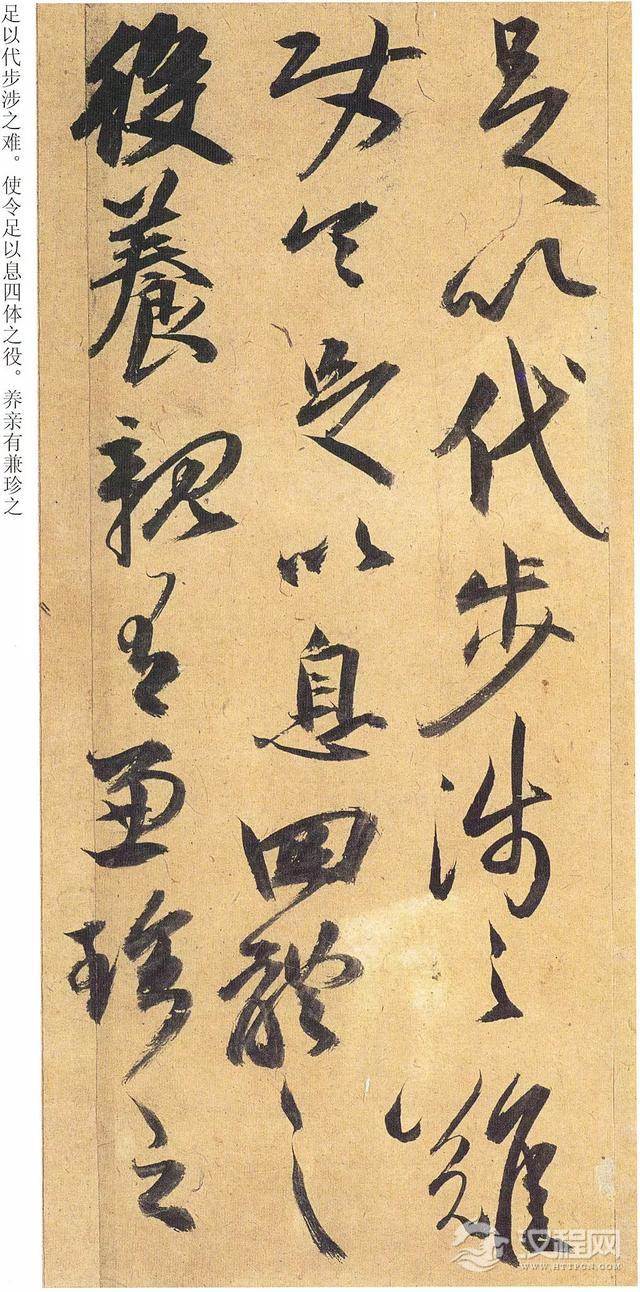 足以代步涉之難
使令足以息四體之
役養親有兼珍之
足以代步涉之难。使令足以息四体之役。养亲有兼珍之
汉程网
WWW.HTTPCN.COM